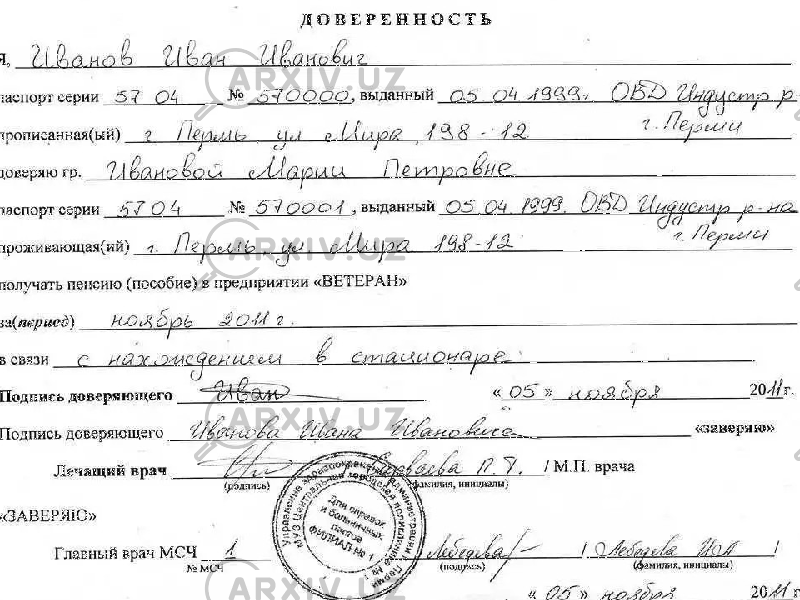 ДОВЕРЕННОСТЬ
Я, Иванов Иван Иванович
паспорт серии 57 04 № 570000, выданный 05.04.1999г. ОВД Индустр р-
прописанная(ый) г Пермь ул Мира 198-12 г. Перми
доверяю гр. Ивановой Марии Петровне
паспорт серии 5704 № 570001, выданный 05.04.1999. ОВД Индустр р-на
проживающая(ий) г. Пермь ул Мира 198-12 г Перми
получать пенсию (пособие) в предприятии «ВЕТЕРАН»
за(период) ноябрь 2011 г.
в связи с нахождением в стационаре
Подпись доверяющего Иван « 05 » ноября 2011 г.
Подпись доверяющего Иванова Ивана Ивановича «заверяю»
Лечащий врач П. / М.П. врача
(подпись) (фамилия, инициалы)
Для справок и больничных листов ФИЛИАЛ № 1
«ЗАВЕРЯЮ»
Главный врач МСЧ 1 Лебедева / Лебедева /
№ МСЧ (подпись) (фамилия, инициалы)
« 05 » ноября 2011 г.
ARXIV.UZ
ARXIV.UZ
ARXIV.UZ
ARXIV.UZ